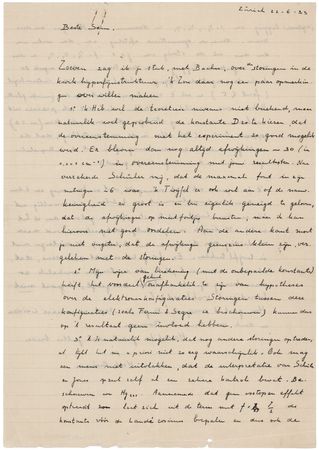 Zürich 22-6-33
Beste Sem.
Zoeven zag ik je stuk, met Bacher, over "Storingen in de
hyperfijnstruktuur". 'k Zou daar nog een paar opmerkin-
gen over willen maken.
1° 'k Heb wel de teoretiese niveaus niet berekend, maar
natuurlik wel geprobeerd de konstante D zo te kiezen dat
de overeenstemming met het experiment zo goed mogelik
werd. Er bleven dan nog altijd afwijkingen ~ 30 (in
cm⁻¹) in overeenstemming met jouw resultaten. Nu
verzekerde Schüler mij, dat de maximale fout in zijn
metingen ± 6 was. 'k Twijfel er ook wel aan of de nauw-
keurigheid zo groot is en ben eigenlik geneigd te geloven,
dat de afwijkingen op meetfoutjes berusten, maar ik kan
hierover niet goed oordelen. Aan de andere kant moet
je niet vergeten, dat de afwijkingen geweldig klein zijn, ver-
geleken met de storingen.
2° Mijn wijze van berekening (met de onbepaalde konstante)
heeft het voordeel geheel onafhankelik te zijn van hypotheses
over de elektronenkonfiguraties. Storingen tussen deze
konfiguraties (zoals Fermi & Segre ze beschouwen) kunnen dus
op 't resultaat geen invloed hebben.
3° 't Is natuurlik mogelik, dat nog andere storingen optreden,
al lijkt het me a priori niet zo erg waarschijnlik. Ook mag
een mens niet uitvlakken, dat de interpretatie van Schüler
en Jones zelf al een zekere kritiek behoeft. Be-
schouwen we Hg. Aannemende dat geen storingen effekt
optreedt laat zich uit de term met f = de
konstante vóór de Landé cosinus bepalen en dus ook de